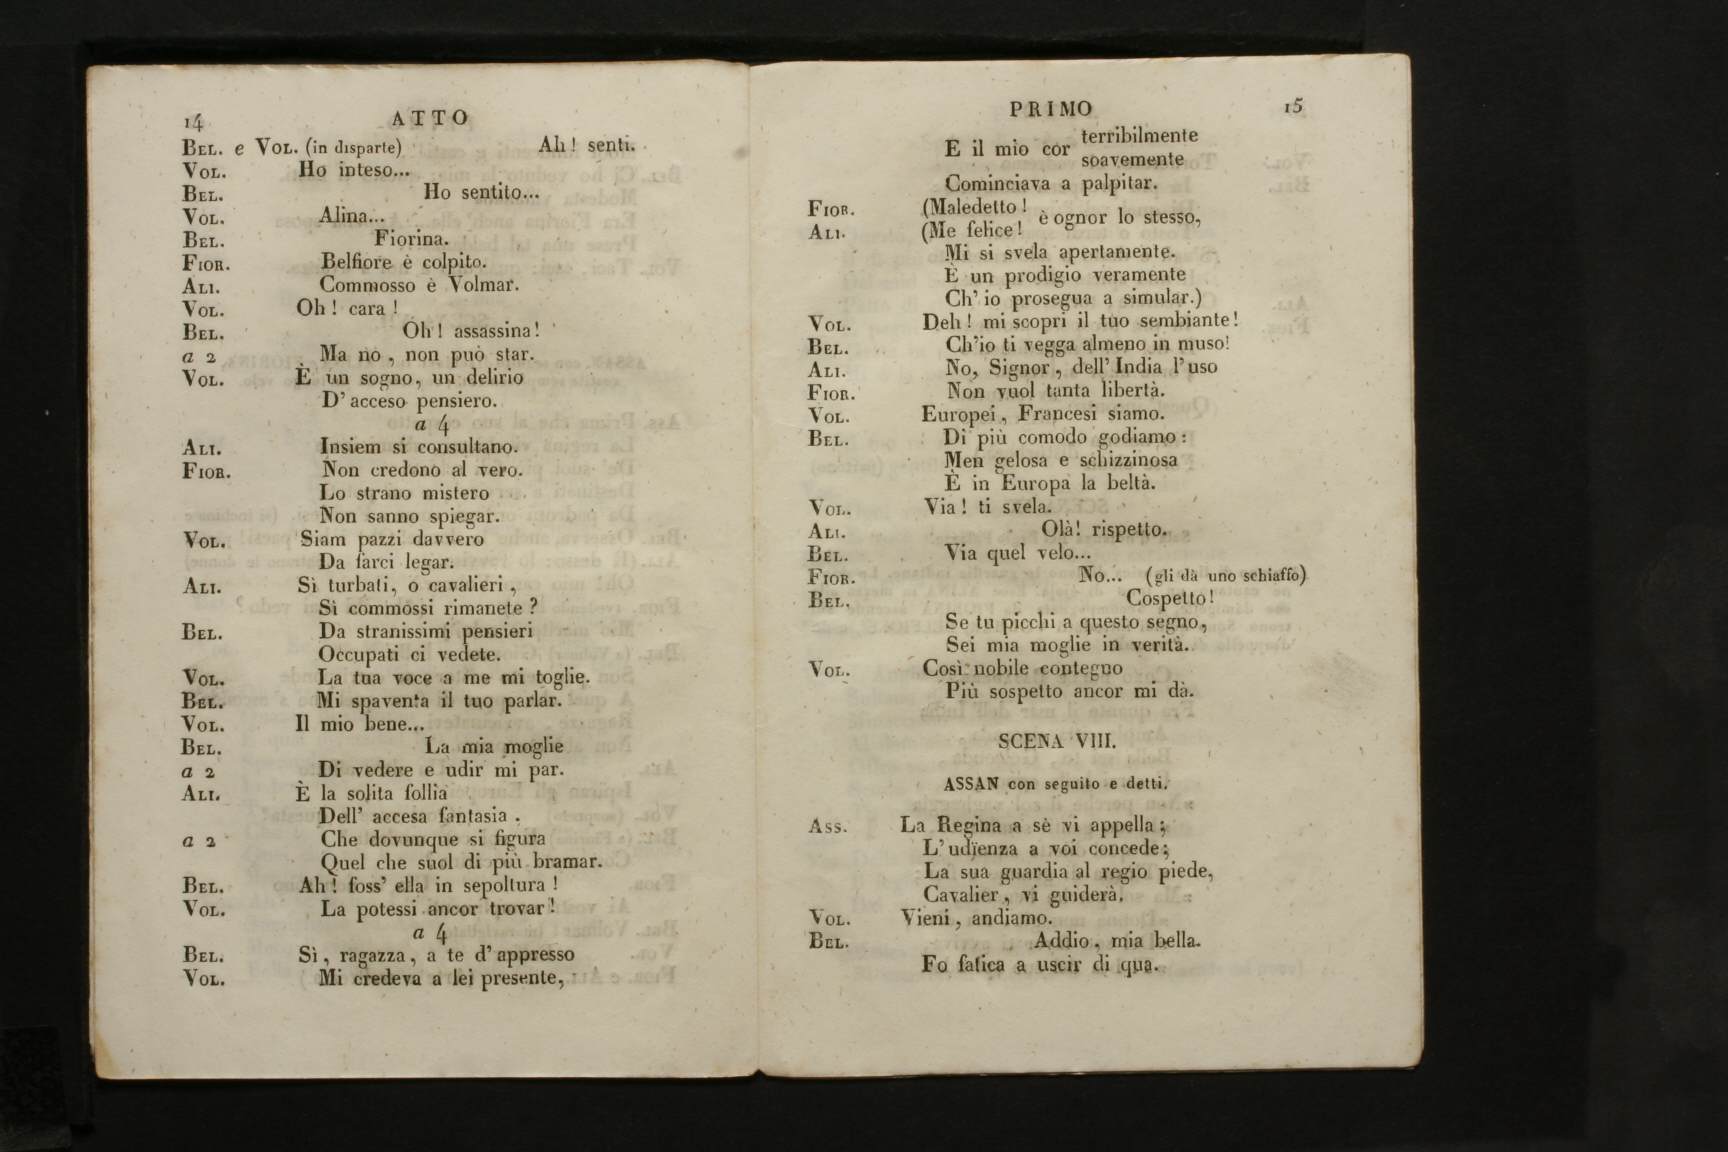 14 ATTO
BEL. e VOL. (in disparte) Ah! senti.
VOL. Ho inteso...
BEL. Ho sentito...
VOL. Alina...
BEL. Fiorina.
FIOR. Belfiore è colpito.
ALI. Commosso è Volmar.
VOL. Oh! cara!
BEL. Oh! assassina!
a 2 Ma no, non può star.
VOL. È un sogno, un delirio
D'acceso pensiero.
a 4
ALI. Insiem si consultano.
FIOR. Non credono al vero.
Lo strano mistero
Non sanno spiegar.
VOL. Siam pazzi davvero
Da farci legar.
ALI. Sì turbati, o cavalieri,
Sì commossi rimanete?
BEL. Da stranissimi pensieri
Occupati ci vedete.
VOL. La tua voce a me mi toglie.
BEL. Mi spaventa il tuo parlar.
VOL. Il mio bene...
BEL. La mia moglie
a 2 Di vedere e udir mi par.
ALI. È la solita follia
Dell' accesa fantasia.
a 2 Che dovunque si figura
Quel che suol di più bramar.
BEL. Ah! foss' ella in sepoltura!
VOL. La potessi ancor trovar!
a 4
BEL. Sì, ragazza, a te d'appresso
VOL. Mi credeva a lei presente,
PRIMO 15
terribilmente
E il mio cor
soavemente
Cominciava a palpitar.
FIOR. (Maledetto!
è ognor lo stesso,
ALI. (Me felice!
Mi si svela apertamente.
È un prodigio veramente
Ch' io prosegua a simular.)
VOL. Deh! mi scopri il tuo sembiante!
BEL. Ch'io ti vegga almeno in muso!
ALI. No, Signor, dell' India l'uso
FIOR. Non vuol tanta libertà.
VOL. Europei, Francesi siamo.
BEL. Di più comodo godiamo:
Men gelosa e schizzinosa
È in Europa la beltà.
VOL. Via! ti svela.
ALI. Olà! rispetto.
BEL. Via quel velo...
FIOR. No... (gli dà uno schiaffo)
BEL. Cospetto!
Se tu picchi a questo segno,
Sei mia moglie in verità.
VOL. Così nobile contegno
Più sospetto ancor mi dà.
SCENA VIII.
ASSAN con seguito e detti.
ASS. La Regina a sè vi appella;
L'udïenza a voi concede;
La sua guardia al regio piede,
Cavalier, vi guiderà.
VOL. Vieni, andiamo.
BEL. Addio, mia bella.
Fo fatica a uscir di qua.